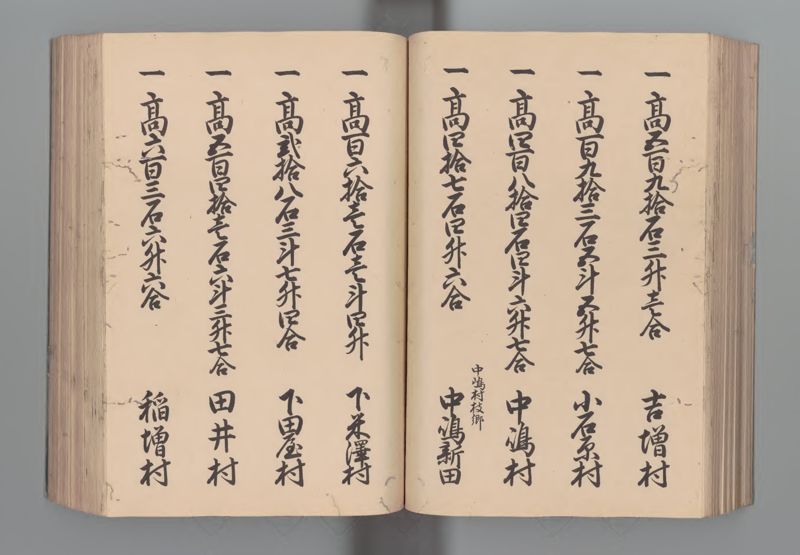 一 高五百九拾石三升壱合 吉増村
一 高百九拾三石五斗五升七合 小石原村
一 高四百八拾四石四斗六升七合 中嶋村
中嶋村枝郷
一 高四拾七石四升六合 中嶋新田
一 高百六拾壱石壱斗四升 下米澤村
一 高弐拾八石三斗七升四合 下田屋村
一 高五百四拾壱石六斗三升七合 田井村
一 高六百三石六升六合 稲増村